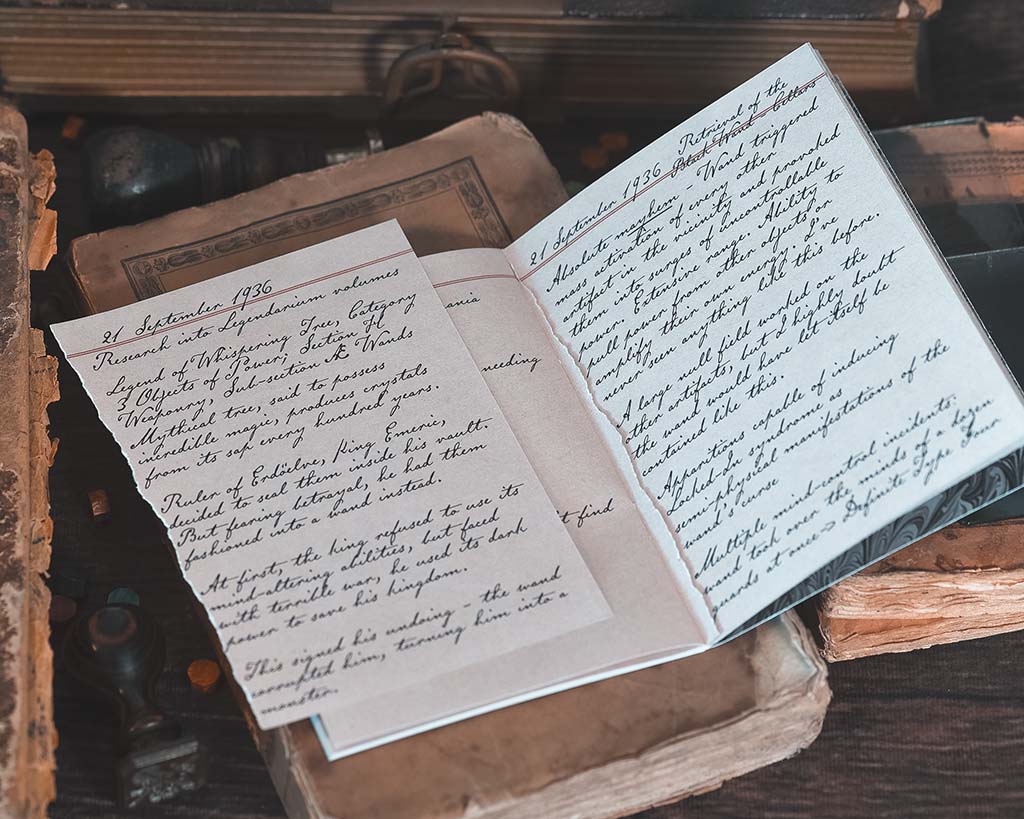 21 September 1936
Research into Legendarium volumes
Legend of Whispering Tree, Category
3 Objects of Power; Section F4
Weaponry, Sub-section A Wands
Mythical tree, said to possess
incredible magic, produces crystals
from its sap every hundred years.
Ruler of Erdöelve, King Emeric,
decided to seal them inside his vault.
But fearing betrayal, he had them
fashioned into a wand instead.
At first, the king refused to use its
mind-altering abilities, but faced
with terrible war, he used its dark
power to save his kingdom.
This signed his undoing - the wand
corrupted him, turning him into a
monster.
ania
needing
t find
21 September 1936 Retrieval of the
Black Wand - Cellars
Absolute mayhem - Wand triggered
mass activation of every other
artifact in the vicinity and provoked
them into surges of uncontrollable
power. Extensive range. Ability to
pull power from other objects or
amplify their own energy. I've
never seen anything like this before.
A large null field worked on the
other artifacts, but I highly doubt
the wand would have let itself be
contained like this.
Apparitions capable of inducing
Locked-In syndrome as
semi-physical manifestations of the
wand's curse
Multiple mind-control incidents:
wand took over the minds of a dozen
guards at once => Definite Type Four